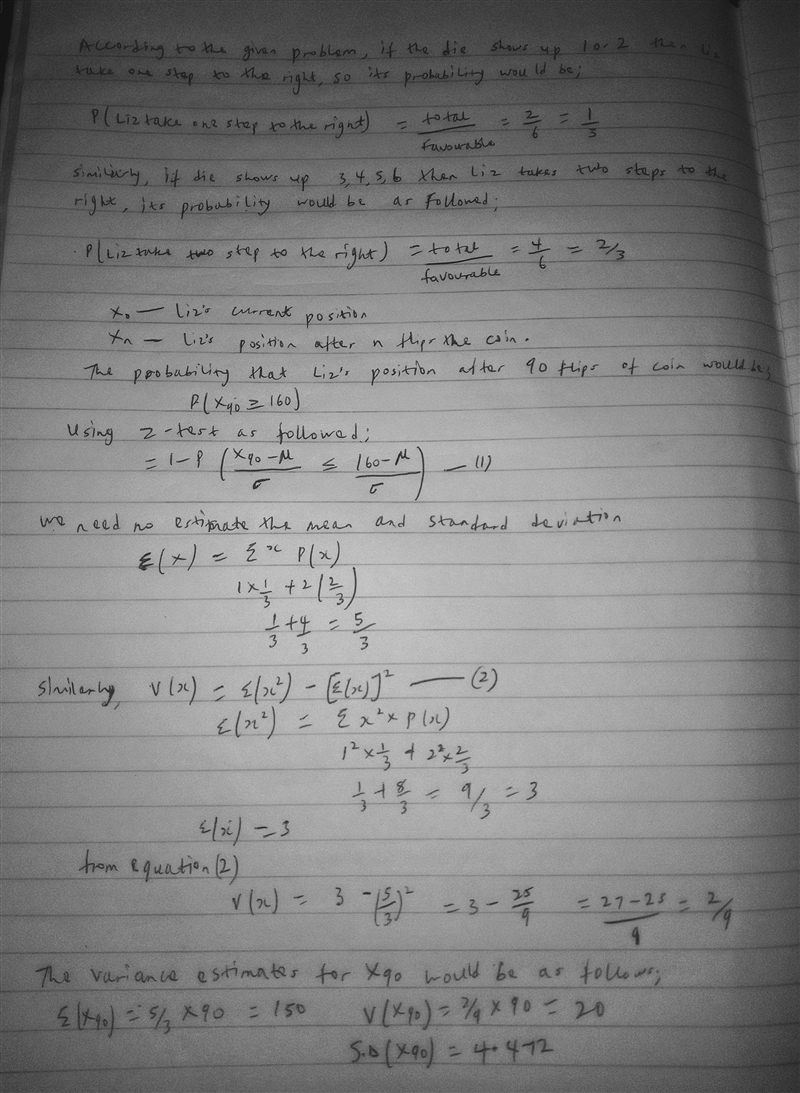 According to the given problem, if the die shows up 1 or 2 then Liz
take one step to the right, so its probability would be;
P(Liz take one step to the right) = total/favourable = 2/6 = 1/3
similarly, if die shows up 3,4,5,6 then Liz takes two steps to the
right, its probability would be as followed;
P(Liz take two step to the right) = total/favourable = 4/6 = 2/3
X₀ — Liz's current position
Xn — Liz's position after n flips the coin.
The probability that Liz's position after 90 flips of coin would be;
P(X90 ≥ 160)
Using z-test as followed;
= 1-P (X90-M/σ ≤ 160-M/σ) — (1)
we need no estimate the mean and standard deviation
Σ(x) = Σx P(x)
1×1/3 + 2(2/3)
1/3 + 4/3 = 5/3
Similarly, V(x) = Σ(x²) - [Σ(x)]² — (2)
Σ(x²) = Σx² × P(x)
1² × 1/3 + 2² × 2/3
1/3 + 8/3 = 9/3 = 3
Σ(x) = 3
from equation (2)
V(x) = 3 - (5/3)² = 3 - 25/9 = 27-25/9 = 2/9
The variance estimates for X90 would be as follows;
Σ(X90) = 5/3 × 90 = 150 V(X90) = 2/9 × 90 = 20
S.D(X90) = 4.472